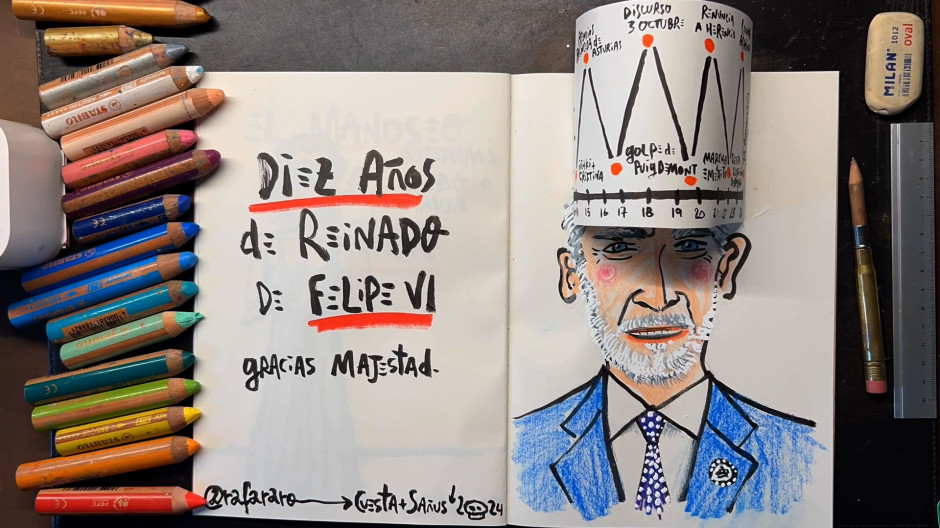 DISCURSO
3 OCTUBRE
RENUNCIA
A HERENCIA
PRINCESA de
ASTURIAS
golpe de
PuigDEMONT
MARCHA
EMÉRITO
CRISTINA
15 16 17 18 19 20 21 22 23
DiEZ AÑoS
dE REiNADO
DE FELiPE VI
gRACiAS MAJEStAd.
@rafararo CUESTA+SAÑUS' 2024
STABILO
MILAN
1012
oval